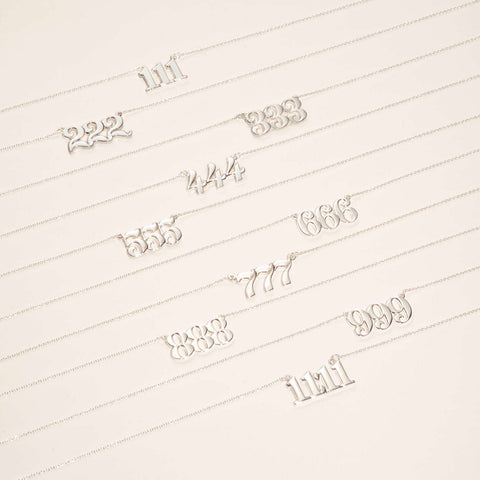 111
222
333
444
555
666
777
888
999
11:11